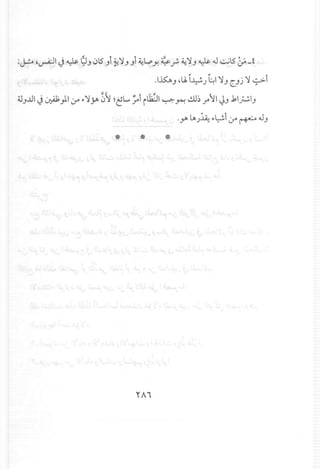 ٤ـ مَنْ كانت له عليه ولاية شرعيَّة بوصاية أو ولايةٍ أو كان وليًّا عليه في النفس، مثل:
أختٍ لا زوج ولا ابناً رشيداً لها، وهكذا.
واشتراط ولي الأمر ذلك بموجب النِّظام أمرٌ سائغ؛ لأنَّ هؤلاء من الموظفين في الدولة
وله منعهم من أشياء يقدِّرها هو.
* * *
٢٨٦